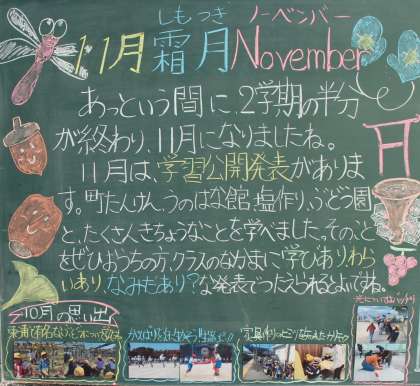 しもつき ノーベンバー
11月 霜月 November
あっという間に、2学期の半分
が終わり、11月になりましたね。
11月は、学習公開発表がありま
す。町たんけん、うのはな館、塩作り、ぶどう園
と、たくさんきちょうなことを学べました。そのこと
をぜひおうちの方、クラスのなかまに学びありわら
いあり、なみだあり?な発表でつたえられるとよいですね。
10月の思い出